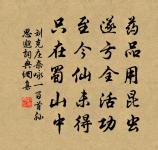 药品用昆虫
遂方全活功
至今仙未得
只在蜀山中
刘克庄杂咏一百首孙
思邈词典网喜